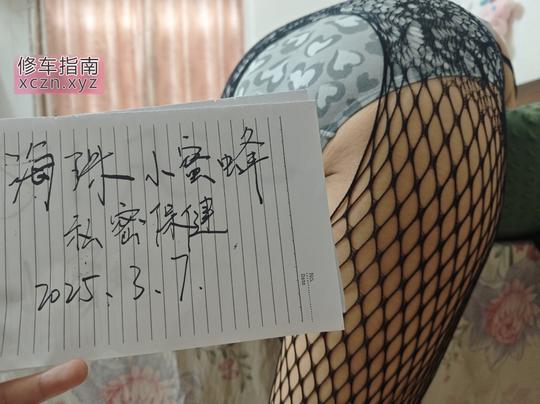 修车指南
xczn.xyz
海珠小蜜蜂
私密保健
2025.3.7.
No.
Date